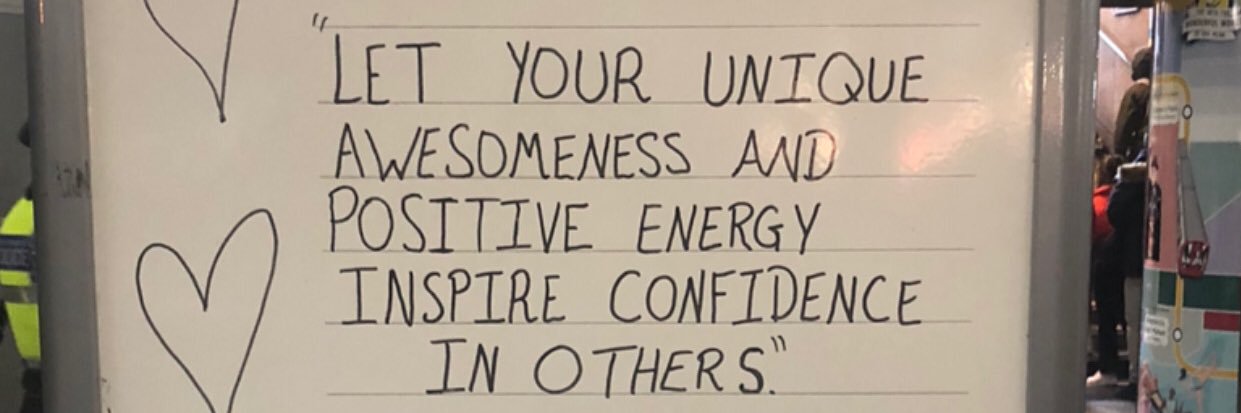 "LET YOUR UNIQUE
AWESOMENESS AND
POSITIVE ENERGY
INSPIRE CONFIDENCE
IN OTHERS."